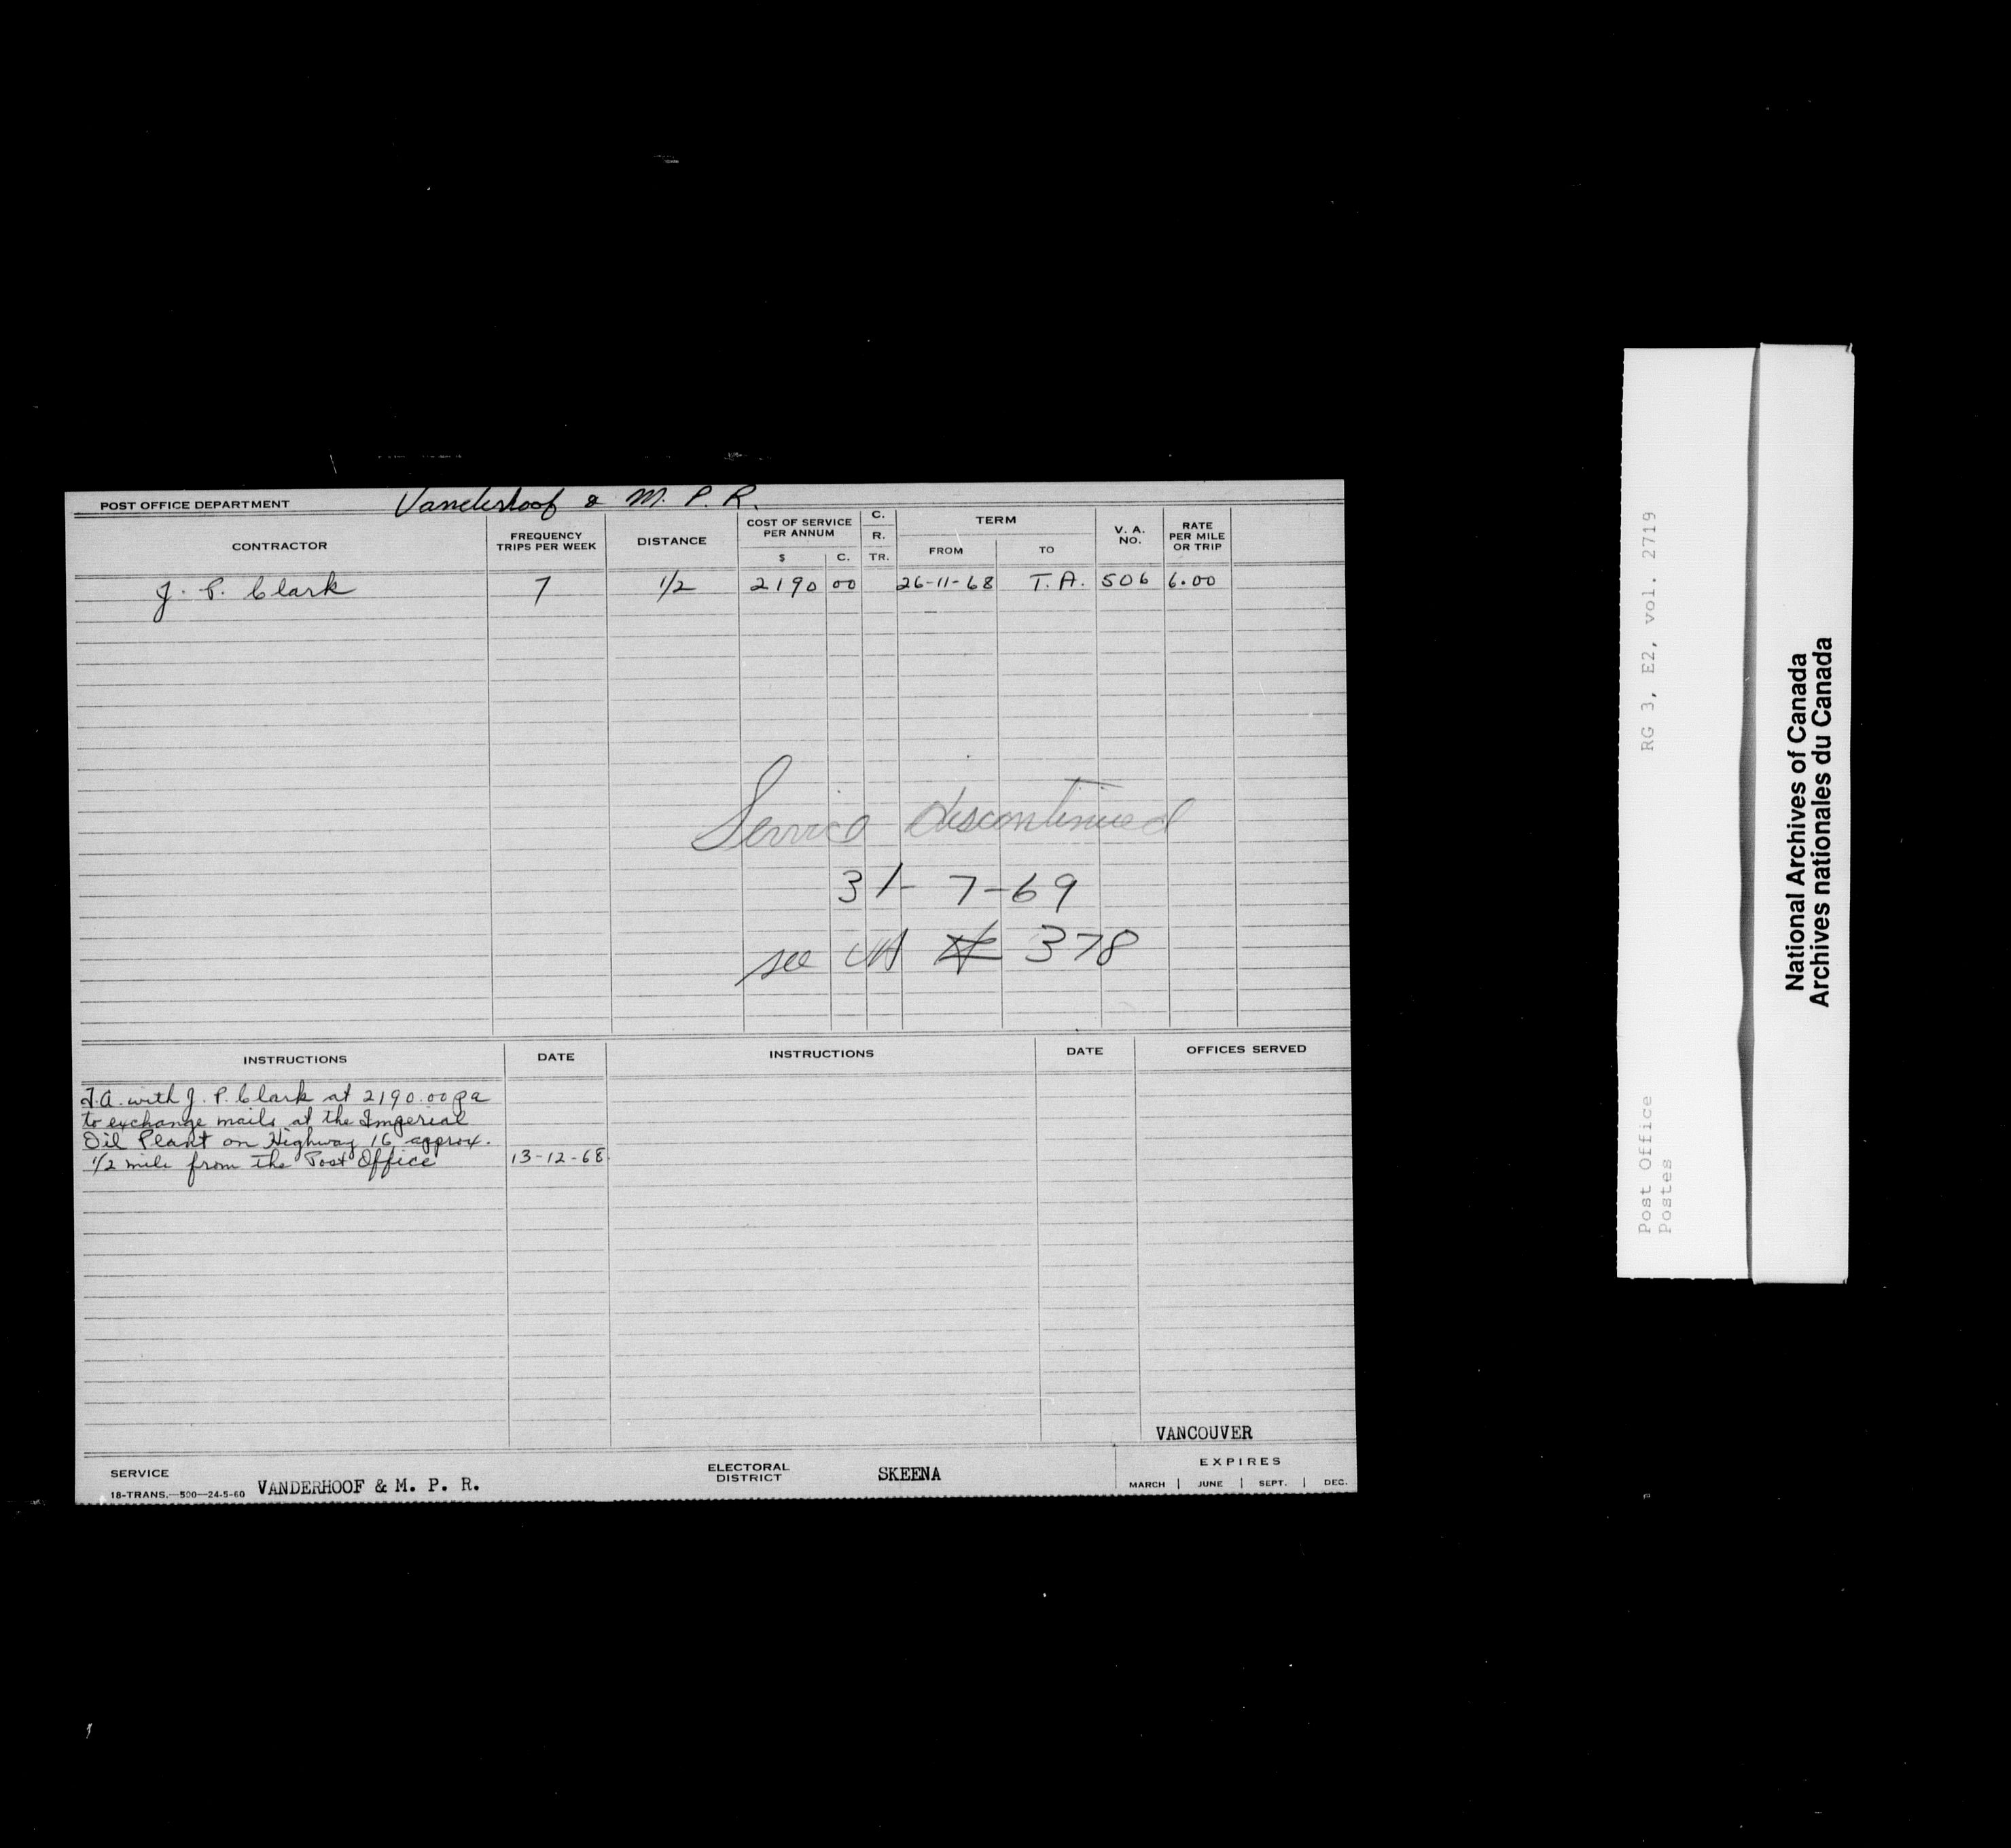 POST OFFICE DEPARTMENT Vanderhoof & M. P. R.
CONTRACTOR FREQUENCY TRIPS PER WEEK DISTANCE COST OF SERVICE PER ANNUM $ C. C. R. TR. TERM FROM TO V. A. NO. RATE PER MILE OR TRIP
J. P. Clark 7 1/2 2190 00 26-11-68 T. A. 506 6.00
Service discontinued
31-7-69
see VA # 378
INSTRUCTIONS DATE INSTRUCTIONS DATE OFFICES SERVED
T.A. with J. P. Clark at 2190.00 pa
to exchange mails at the Imperial
Oil Plant on Highway 16 approx.
1/2 mile from the Post Office 13-12-68
VANCOUVER
SERVICE VANDERHOOF & M. P. R. ELECTORAL DISTRICT SKEENA EXPIRES
18-TRANS.—500—24-5-60 MARCH | JUNE | SEPT. | DEC.
RG 3, E2, vol. 2719
Post Office
Postes
National Archives of Canada
Archives nationales du Canada